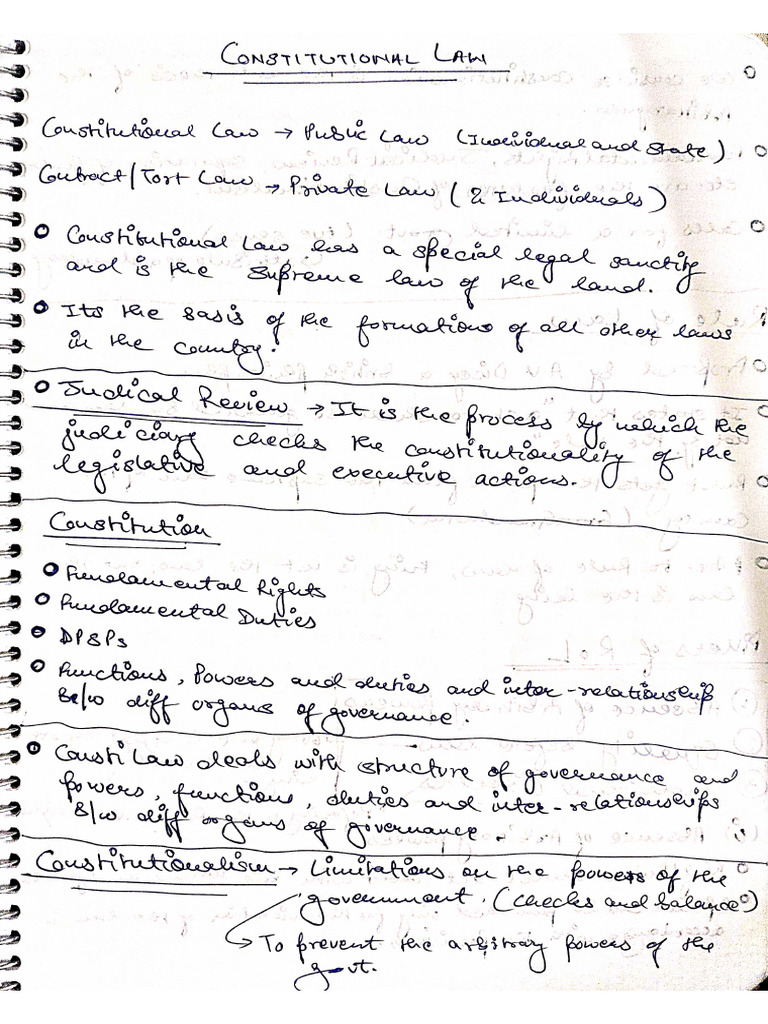 CONSTITUTIONAL LAW
Constitutional Law → Public Law (Individual and State)
Contract/Tort Law → Private Law (2 Individuals)
Constitutional Law has a special legal sanctity
and is the supreme law of the land.
Its the basis of the formation of all other laws
in the country.
Judical Review → It is the process by which the
judiciary checks the constitutionality of the
legislative and executive actions.
Constitution
Fundamental Rights
Fundamental Duties
DPSPs
Functions, Powers and duties and inter-relationship
B/w diff organs of governance.
Consti Law deals with structure of governance and
powers, functions, duties and inter-relationships
B/w diff organs of governance.
Constitutionalism → Limitations on the powers of the
government. (checks and balance)
→ To prevent the arbitray powers of the
govt.